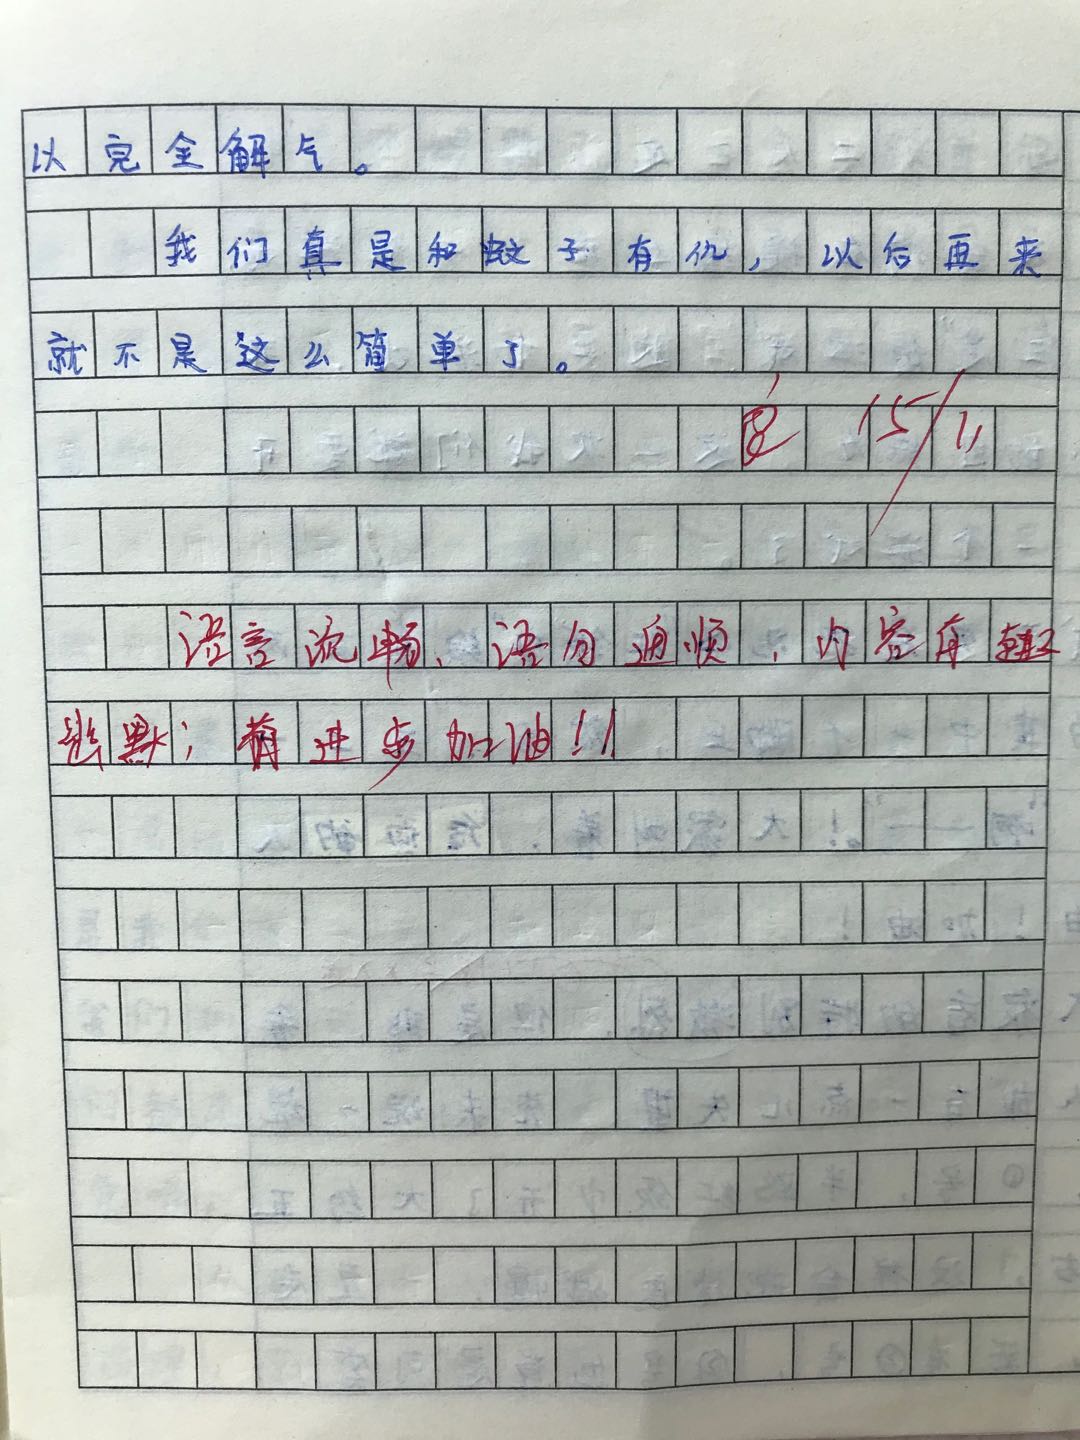 以完全解气。
我们真是和蚊子有仇，以后再来
就不是这么简单了。
良 15/11
语言流畅、语句通顺，内容有趣
幽默；有进步加油！！